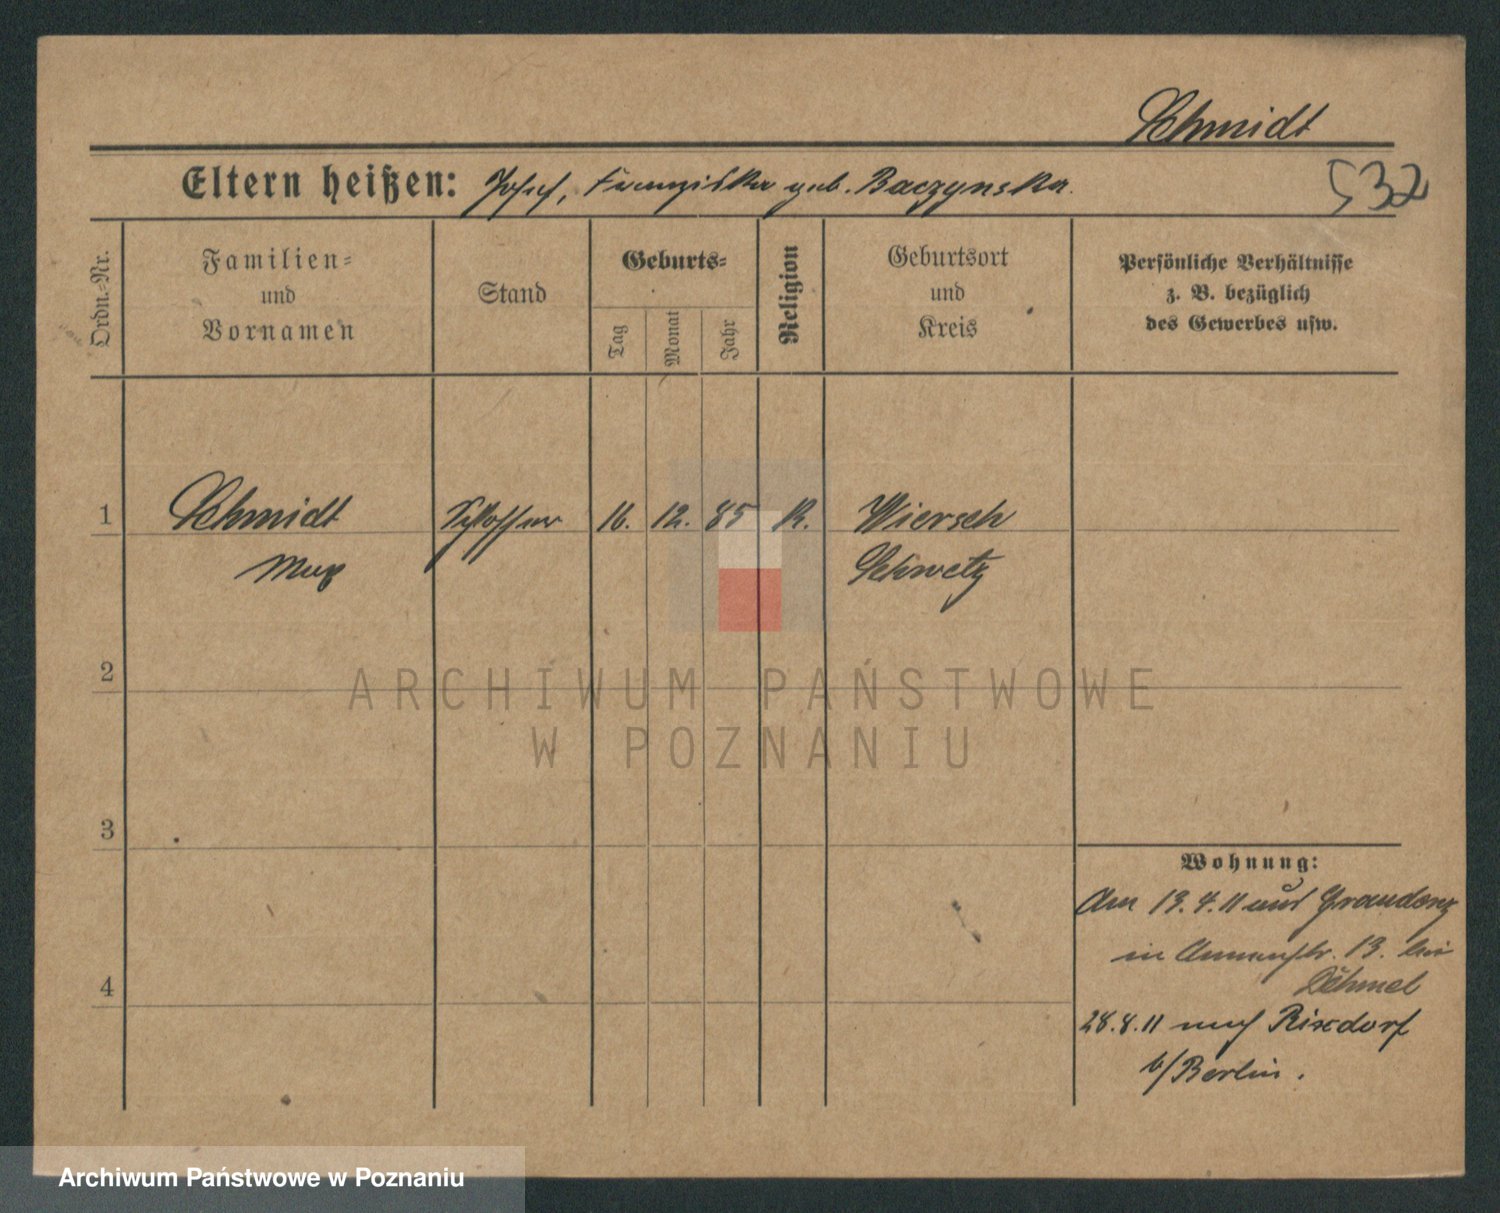 Schmidt
Eltern heißen: Josef, Franziska geb. Baczynska.
532
Ordn.-Nr.
Familien-
und
Vornamen
Stand
Geburts-
Tag
Monat
Jahr
Religion
Geburtsort
und
Kreis
Persönliche Verhältnisse
z. B. bezüglich
des Gewerbes usw.
1 Schmidt Schlosser 16. 12. 85 K. Wiersch
Max Schwetz
2
ARCHIWUM PAŃSTWOWE
W POZNANIU
3
Wohnung:
Am 19.4.11 aus Graudenz
in 13. bei
Dehmel
4
28.8.11 nach Rixdorf
b/Berlin.
Archiwum Państwowe w Poznaniu